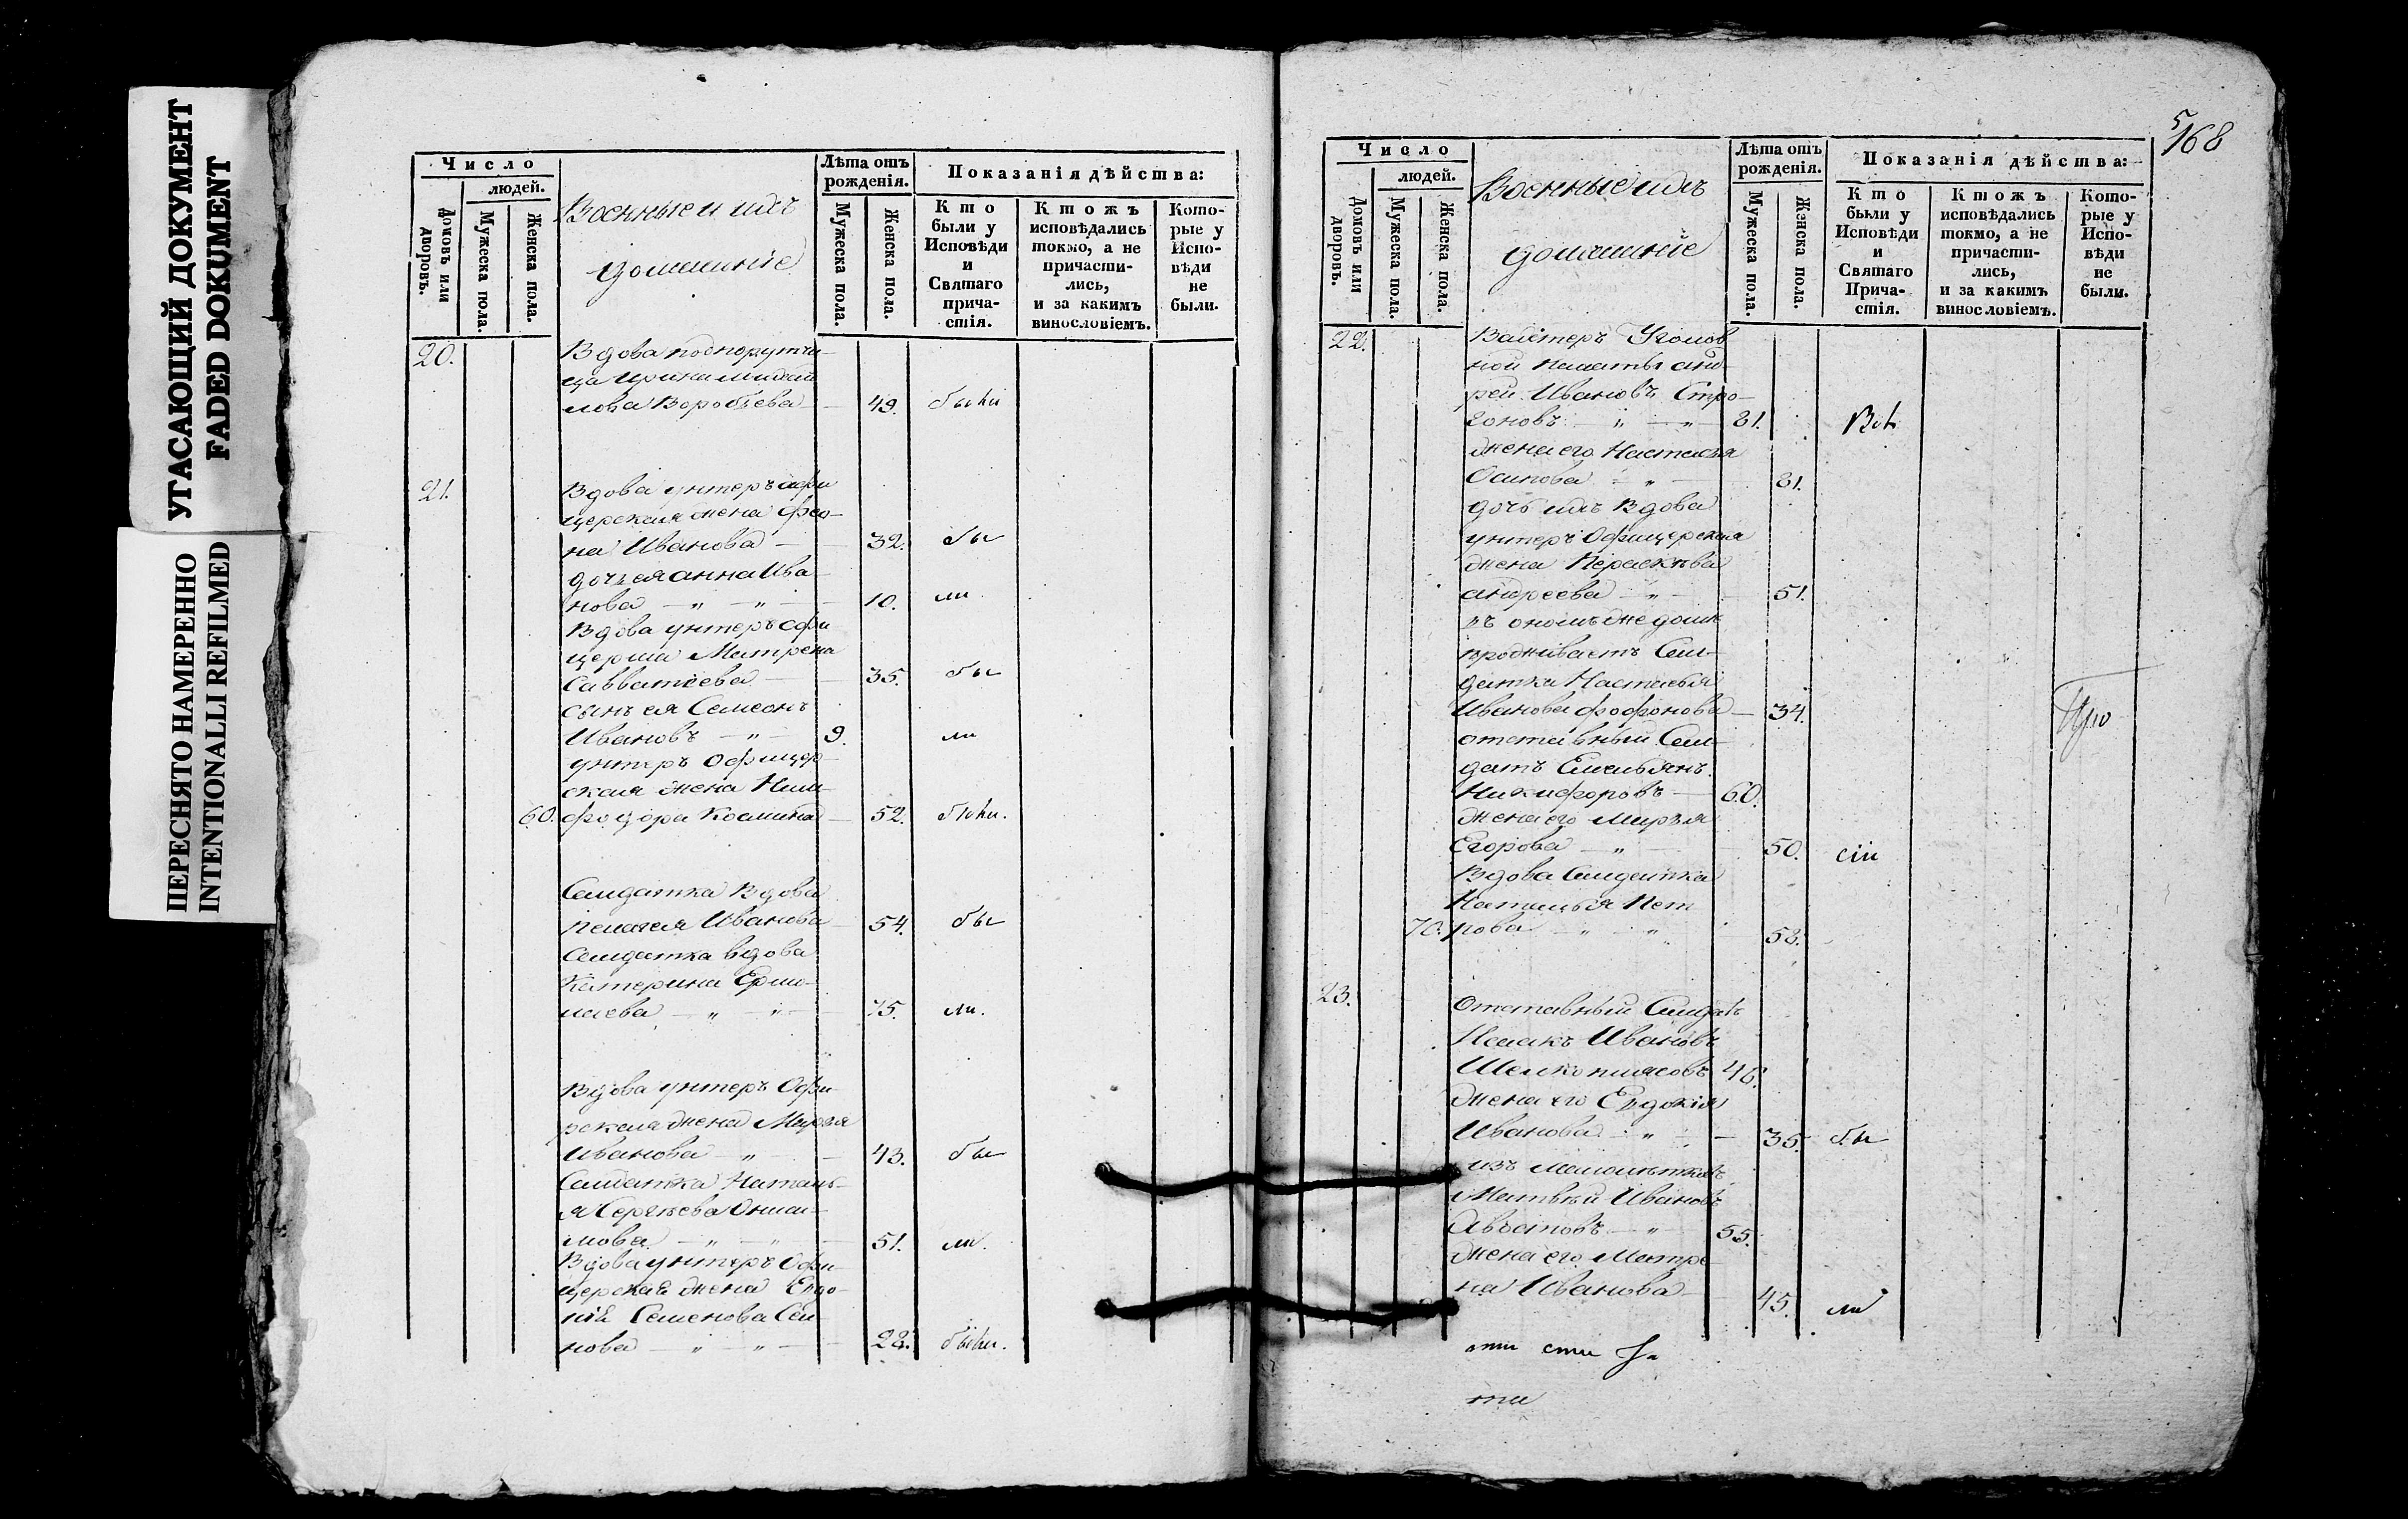 УГАСАЮЩИЙ ДОКУМЕНТ
FADED DOKUMENT
ПЕРЕСНЯТО НАМЕРЕННО
INTENTIONALLI REFILMED
Число
людей.
Домовъ или дворовъ.
Мужеска пола.
Женска пола.
Военные и ихъ
домашніе
Лѣта отъ
рожденія.
Мужеска пола.
Женска пола.
Показанія дѣйства:
Кто
были у
Исповѣди
и
Святаго
прича-
стія.
Ктожъ
исповѣдались
токмо, а не
причасти-
лись,
и за какимъ
винословіемъ.
Кото-
рые у
Испо-
вѣди
не
были.
20.
Вдова подпорутчи-
ца Ирина Михай
лова Воробьева 49. были
21.
Вдова унтеръ офи
церская жена Фео-
на Иванова 32. бы
дочь ея анна Ива
нова 10. ли
Вдова унтеръ офи
церша Матрена
Савватеева 35. бы
сынъ ея Семеонъ
Ивановъ 9. ли
унтеръ Офицер
ская жена Ним-
60. фодора Космина 52. были.
Салдатка Вдова
Пелагея Иванова 54. бы
Салдатка вдова
Катерина Ермо-
лаева 75. ли.
Вдова унтеръ Офи
рская жена Марья
Иванова 43. бы
Салдатка Наталь-
я Сергѣева
мова 51. ли.
Вдова унтеръ Офи-
церская жена Евдо-
кія Семенова Сем
нова 28. были.
5
168
Число
людей.
Домовъ или дворовъ.
Мужеска пола.
Женска пола.
Военные ихъ
домашніе
Лѣта отъ
рожденія.
Мужеска пола.
Женска пола.
Показанія дѣйства:
Кто
были у
Исповѣди
и
Святаго
Прича-
стія.
Ктожъ
исповѣдались
токмо, а не
причасти-
лись,
и за какимъ
винословіемъ.
Кото-
рые у
Испо-
вѣди
не
были.
22.
Вахтеръ Уголов
ной Палаты анд
рей Ивановъ Стро-
гоновъ 81. Вс
жена его Настасья
Осипова 81.
дочь ихъ Вдова
унтеръ Офицерская
жена Параскѣва
андреева 51.
въ ономъ же домѣ
проживаетъ Сал-
датка Настасья
Иванова Фофонова 34.
отставный Сал-
датъ Емельянъ
Никифоровъ 60.
жена его Марья
Егорова 50. сіи
Вдова Салдатка
Наталья Пет
70. рова 58.
23.
Отставный Салдатъ
Иванъ
Шелкоплясовъ 46.
жена его Евдокія
Иванова 35. бы
изъ малолѣтковъ
Матвѣй Ивановъ
55.
жена его Матре-
на Иванова 45. ли